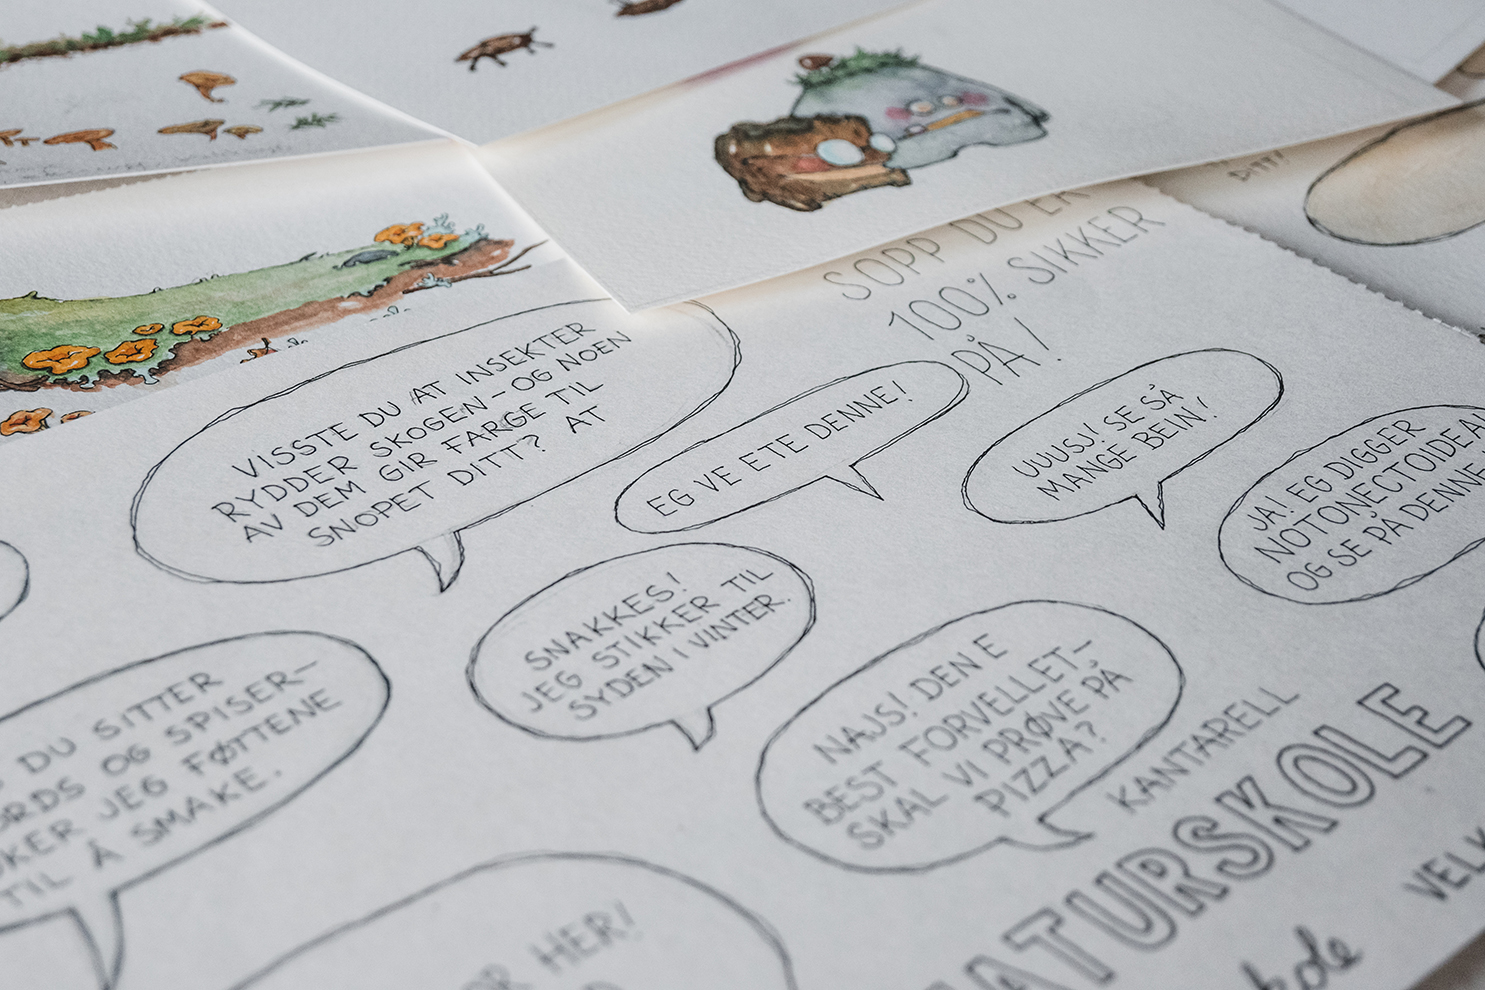 DITT!
SOPP DU ER
100% SIKKER
PÅ!
VISSTE DU AT INSEKTER
RYDDER SKOGEN - OG NOEN
AV DEM GIR FARGE TIL
SNOPET DITT? AT
EG VE ETE DENNE!
UUUSJ! SE SÅ
MANGE BEIN!
JA! EG DIGGER
NOTONECTOIDEA
OG SE PÅ DENNE
SNAKKES!
JEG STIKKER TIL
SYDEN I VINTER.
NAJS! DEN E
BEST FORVELLET-
SKAL VI PRØVE PÅ
PIZZA?
DU SITTER
OG SPISER-
JEG FØTTENE
TIL Å SMAKE.
KANTARELL
NATURSKOLE
HER!